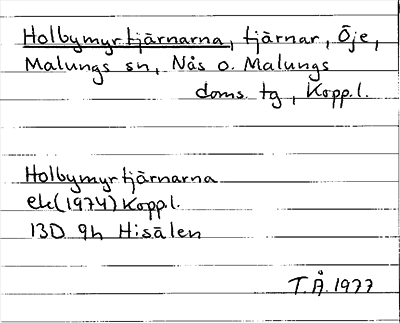 Holbymyrtjärnarna, tjärnar, Öje,
Malungs sn, Nås o. Malungs
doms. tg, Kopp.l.
Holbymyrtjärnarna
ek(1974) Kopp.l.
13D 9h Hisälen
T.Å. 1977